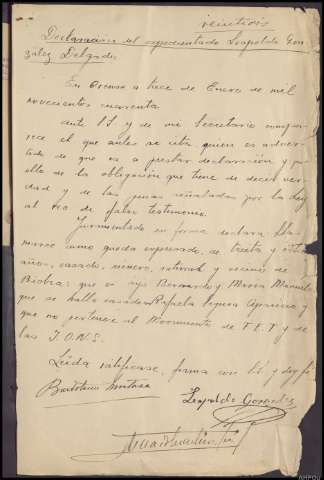 veintidós
Declaración del expedientado Leopoldo Gon-
zález Delgado
En Orense a trece de Enero de mil
novecientos cuarenta
ante S.S. y de mi Secretario compa-
rece el que antes se cita, quien es adver-
tido de que va a prestar declaración y por
ello de la obligación que tiene de decir ver-
dad y de las penas señaladas por la Ley
al reo de falso testimonio.
Juramentado en forma declara: Lla-
marse como queda expresado, de treinta y ocho
años, casado, minero, natural y vecino de
que es hijo Bernardo y María Manuela
que se halla casado Rafaela
que no pertenece al Movimiento de F.E.T. y de
las J.O.N.S.
Leída ratifícase, firma con S.S. doy fé
Leopoldo Gonzalez
AHPOU